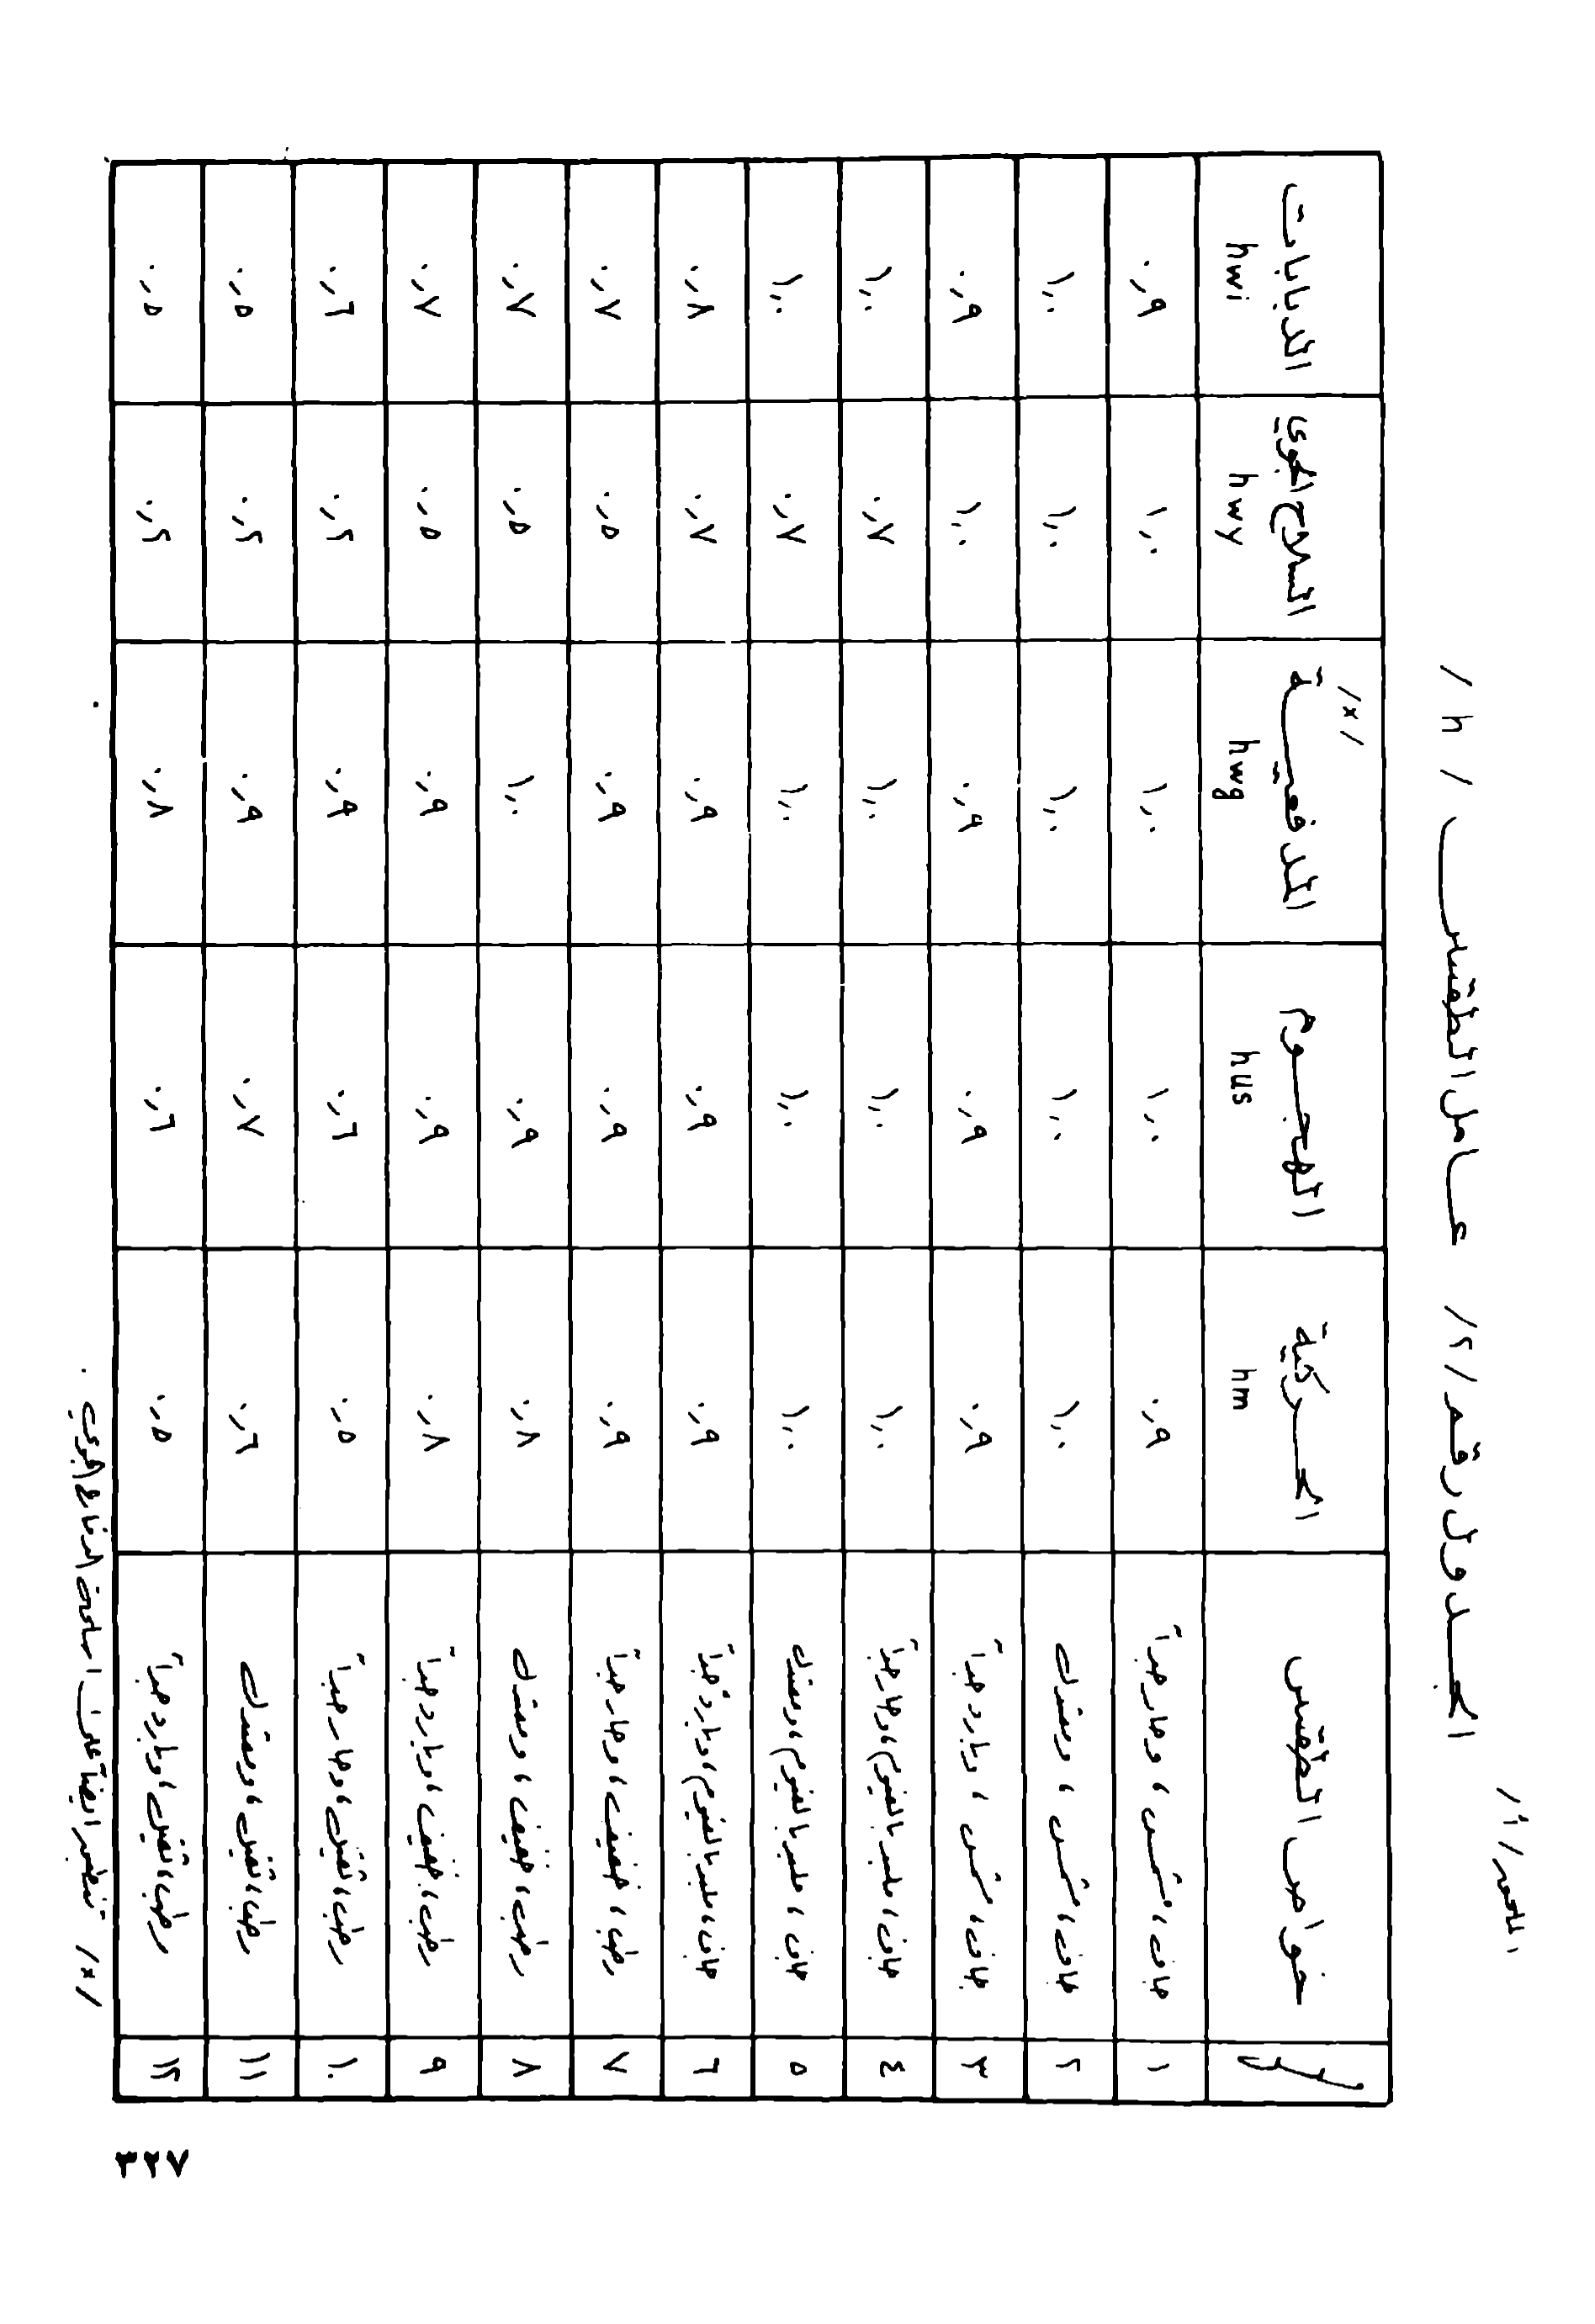 الملحق /أ/
الجدول رقم /٢/ عامل الطقس /h/
خواص الطقس الحركية hm الهجوم hus المدفعية /x/ hwg السلاح الجوي hwy الدبابات hwi
١ جاف، مشمس، وحار جداً ٠,٩ ١,٠ ١,٠ ١,٠ ٠,٩
٢ جاف، مشمس، ومعتدل ١,٠ ١,٠ ١,٠ ١,٠ ١,٠
٣ جاف، مشمس، وبارد جداً ٠,٩ ٠,٩ ٠,٩ ١,٠ ٠,٩
٤ جاف، ملبد بالغيوم، وحار جداً ١,٠ ١,٠ ١,٠ ٠,٧ ١,٠
٥ جاف، ملبد بالغيوم، ومعتدل ١,٠ ١,٠ ١,٠ ٠,٧ ١,٠
٦ جاف، ملبد بالغيوم، وبارد جداً ٠,٩ ٠,٩ ٠,٩ ٠,٧ ٠,٨
٧ رطب، خفيف، وحار جداً ٠,٩ ٠,٩ ٠,٩ ٠,٥ ٠,٧
٨ رطب، خفيف، ومعتدل ٠,٨ ٠,٩ ١,٠ ٠,٥ ٠,٧
٩ رطب، خفيف، وبارد جداً ٠,٨ ٠,٩ ٠,٩ ٠,٥ ٠,٧
١٠ رطب، ثقيل، وحار جداً ٠,٥ ٠,٦ ٠,٩ ٠,٢ ٠,٦
١١ رطب، ثقيل، ومعتدل ٠,٦ ٠,٧ ٠,٩ ٠,٢ ٠,٥
١٢ رطب، ثقيل، وبارد جداً ٠,٥ ٠,٦ ٠,٨ ٠,٢ ٠,٥
/x/ تنطبق أيضاً على أسلحة الدفاع الجوي.
٣٢٧